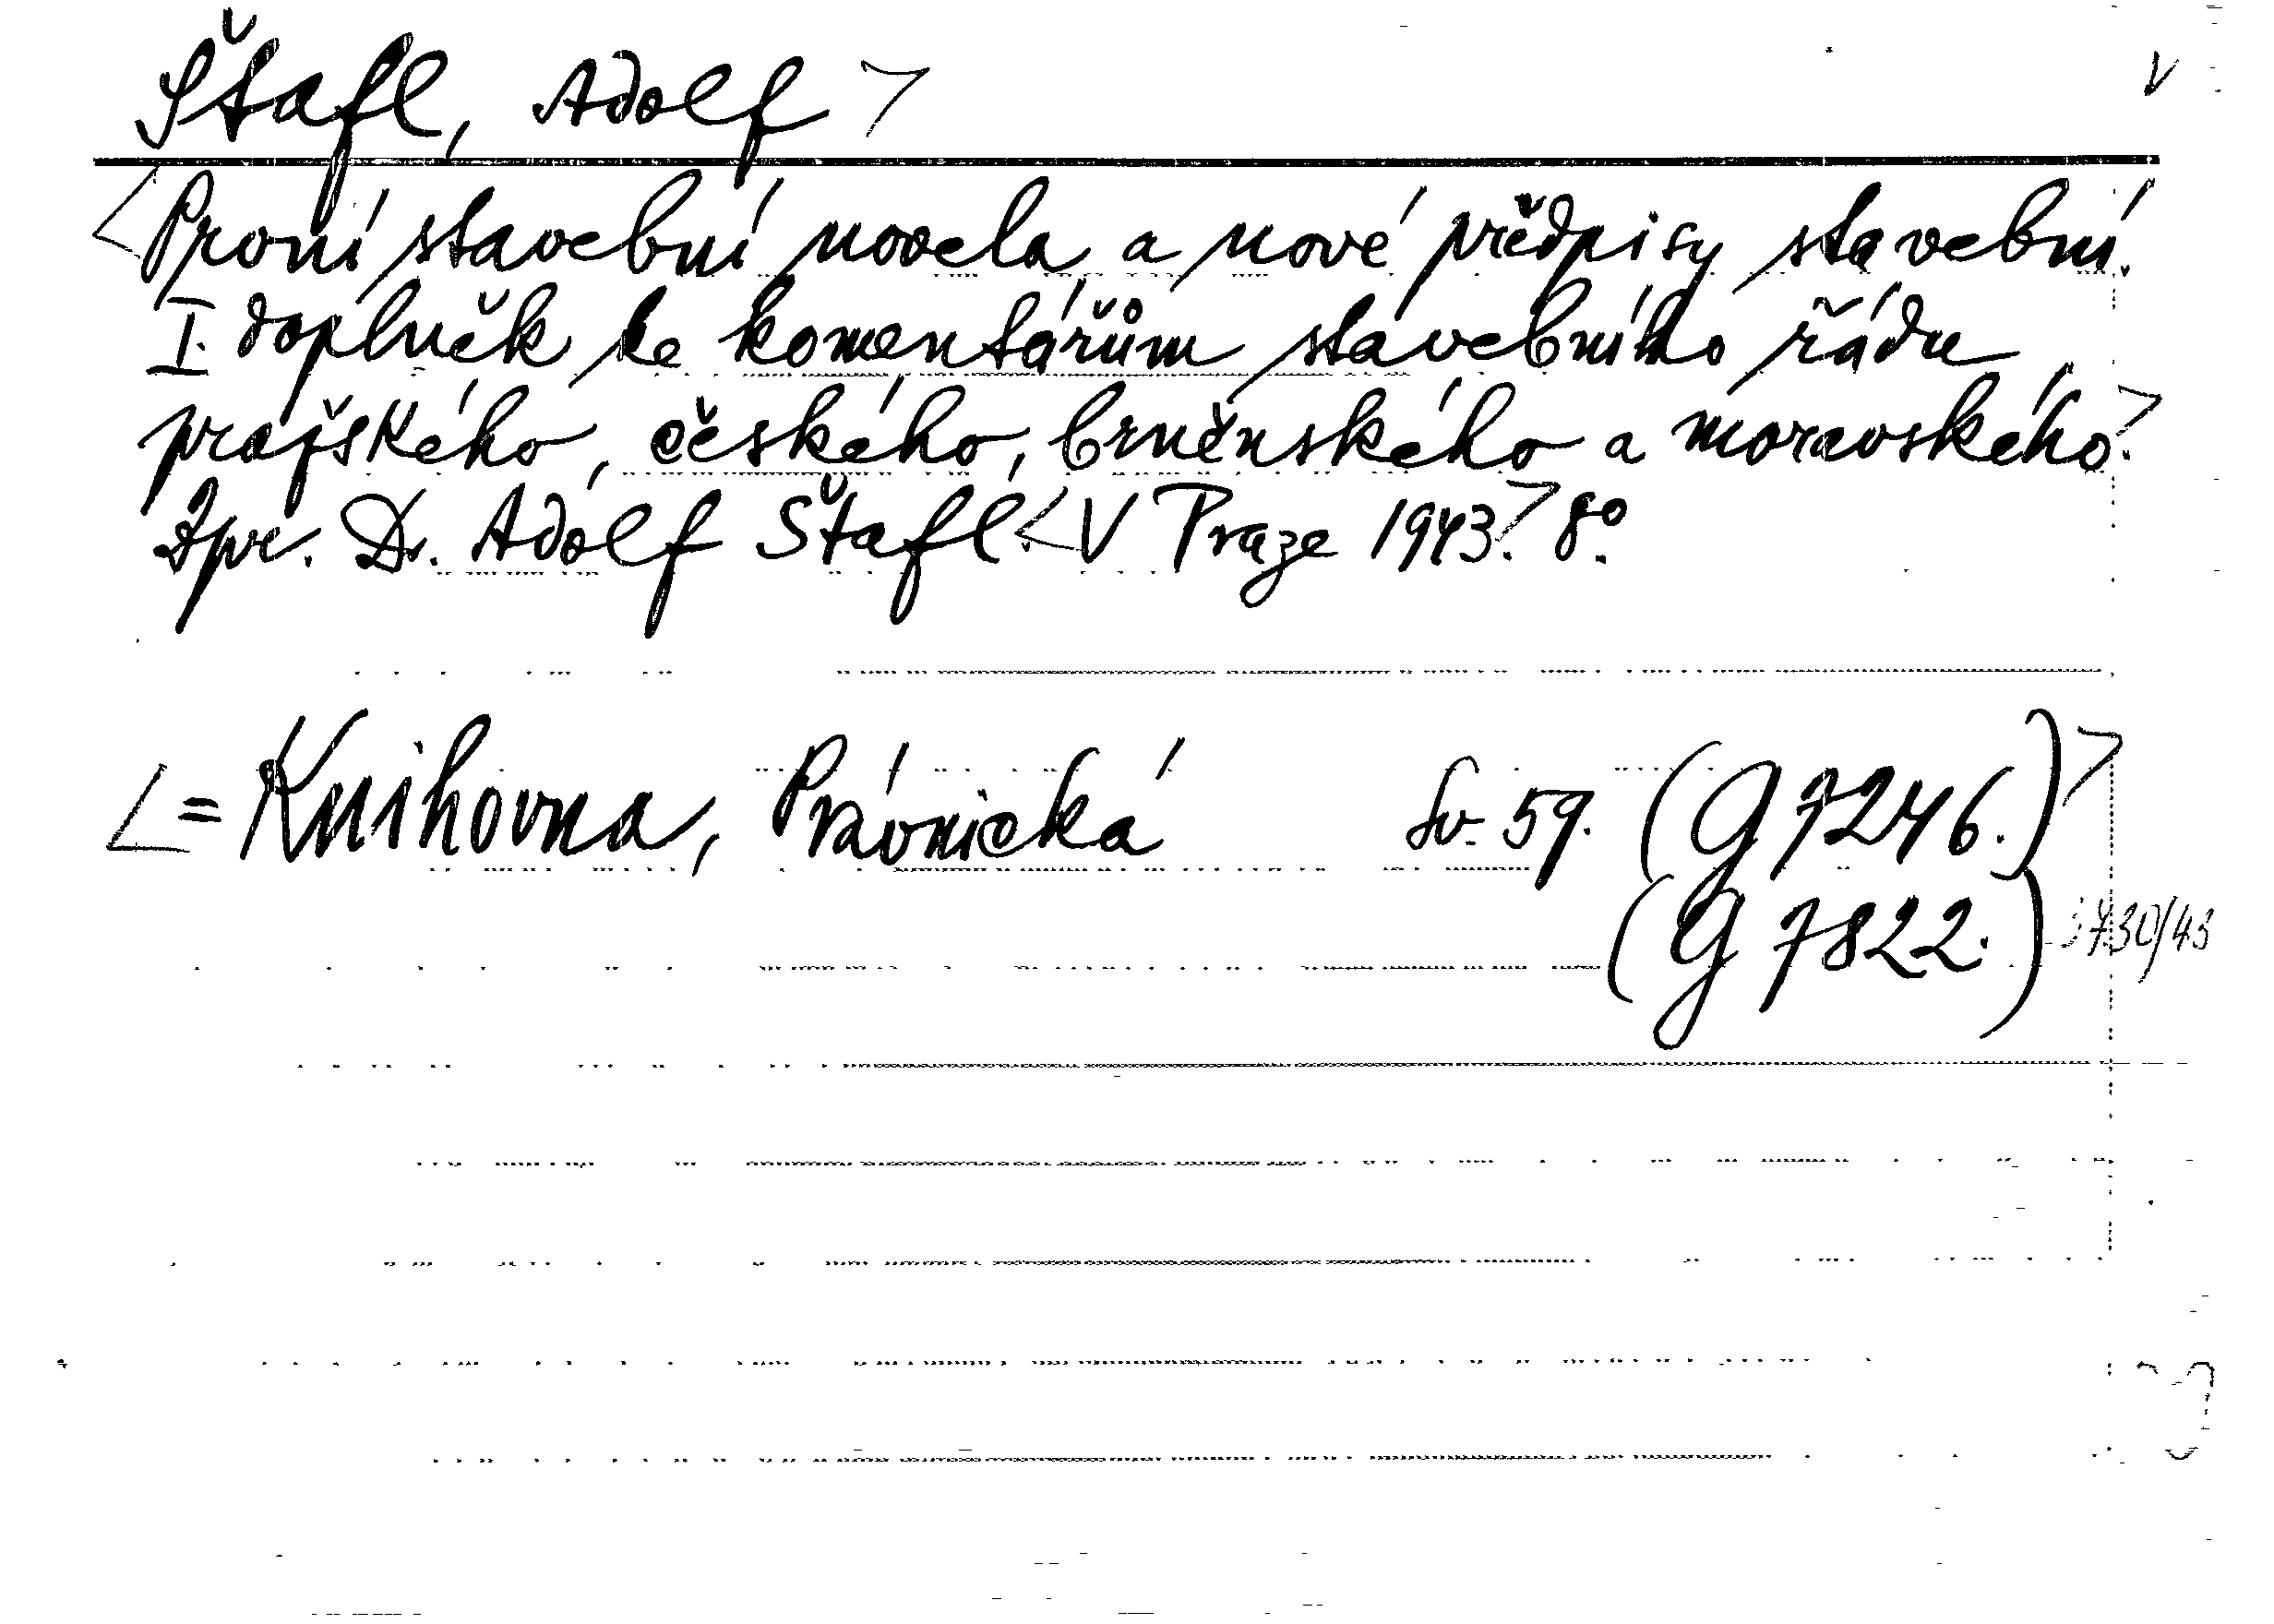 Štafl, Adolf > v
<První stavební novela a nové předpisy stavební.
I. doplněk ke komentářům stavebního řádu
pražského, českého, brněnského a moravského.>
Zpr. Dr. Adolf Štafl <V Praze 1943.> 8º.
<= Knihovna, Právnická Sv. 59. (G 7246.)>
(G 7822.) 3730/43